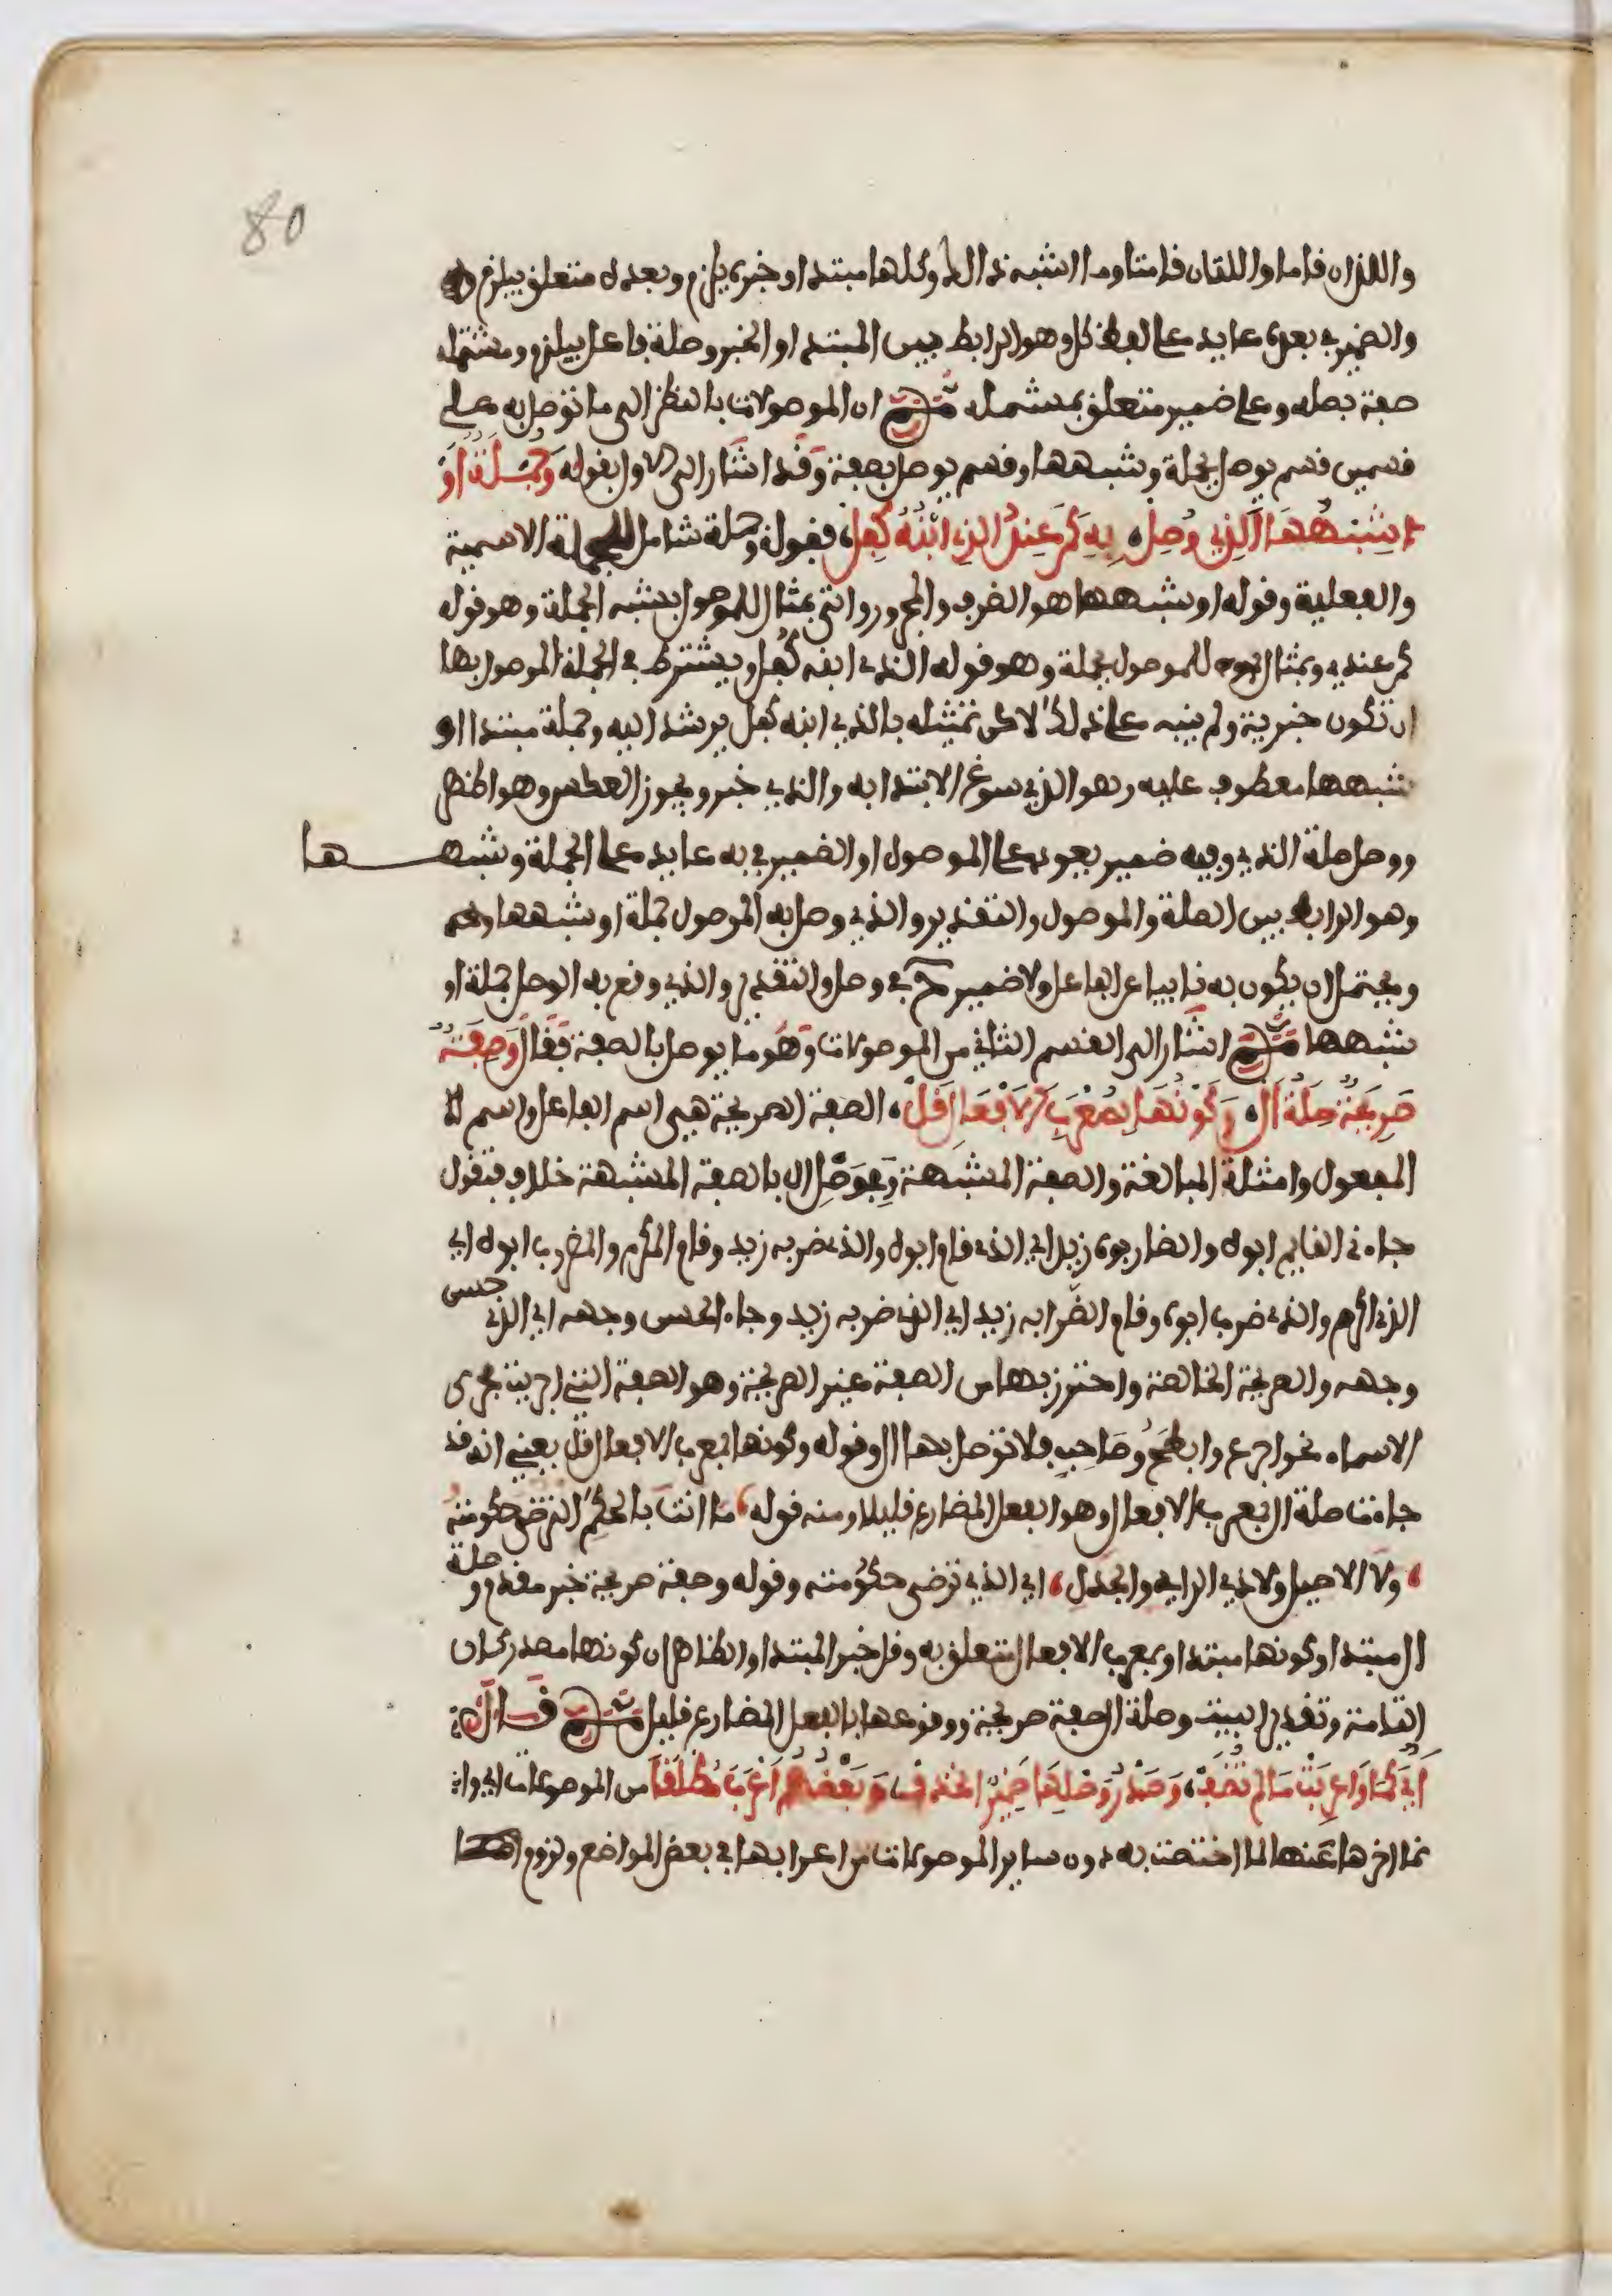 80
واللذان قاما واللتان قامتا وما اشبه ذالك وكلها مبتدا وخبره يلزم وبعده متعلق بيلزم
والضمير في بعده عايد على لفظ كل وهو الرابط بين المبتدا والخبر وصلة فاعل بيلزم ومشتمله
صفة بصله وعلى ضمير متعلق بمشتمله ثم ان الموصولات بالنظر الى ما توصل به على
قسمين قسم يوصل بجملة وشبهها وقسم يوصل بصفة وقد اشار الى الاول بقوله وَجُمْلَةٌ اَوْ
شِبْهُهَا الَّذِي وُصِلْ، بِهِ كَمَنْ عِنْدِي الذِي ابْنُهُ كُفِلْ، فقوله وجملة شامل للجملة الاسمية
والفعلية وقوله او شبهها هو الظرف والمجرور واتى بمثال للموصول بشبه الجملة وهو قوله
كمن عندي وبمثال للموصول بجملة وهو قوله الذي ابنه كفل ويشترط في الجملة الموصول بها
ان تكون خبرية ولم ينبه على ذلك لاكن تمثيله بالذي ابنه كفل يرشد اليه وجملة مبتدا او
شبهها معطوف عليه وهو الذي سوغ الابتدا به والذي خبر ويجوز العكس وهو اظهر
ووصل صلة الذي وفيه ضمير يعود على الموصول والضمير في به عايد على الجملة وشبهها
وهو الرابط بين الصلة والموصول والتقدير والذي وصل به الموصول جملة او شبهها
ويحتمل ان يكون به نايبا عن الفاعل ولا ضمير في وصل والتقدير والذي وقع به الوصل جملة او
شبهها ثم اشار الى القسم الثاني من الموصولات وهو ما يوصل بالصفة فقال وَصِفَةٌ
صَرِيحَةٌ صِلَةُ اَلْ، وَكَوْنُهَا بِمُعْرَبِ الاَفْعَالِ قَلْ، الصفة الصريحة هي اسم الفاعل واسم
المفعول وامثلة المبالغة والصفة المشبهة وفي وصل ال بالصفة المشبهة خلاف فتقول
جاءني القايم ابوه والضاربه زيد اي الذي قام ابوه والذي ضربه زيد وقام المكرم والمضروب ابوه اي
الذي اكرم والذي ضرب ابوه وقام الضرابه زيد اي الذي ضربه زيد وجاء الحسن وجهه اي الذي حسن
وجهه والصريحة الخالصة واحترز بها من الصفة غير الصريحة وهو الصفة التي اجريت مجرى
الاسماء نحو اجرع وابطح وصاحب فلا توصل بها ال وقوله وكونها بمعرب الافعال قل يعني انه قد
جاءت صلة ال بمعرب الافعال وهو الفعل المضارع قليلا ومنه قوله، ما انت بالحكم الترضى حكومته
، ولا الاصيل ولا ذي الراي والجدل، اي الذي ترضى حكومته وقوله وصفة صريحة خبر مقدم وصلة
ال مبتدا وكونها مبتدا وبمعرب الافعال متعلق به وقل خبر المبتدا والظاهر ان كونها مصدر كان
التامة وتقدير البيت وصلة ال صفة صريحة ووقوعها بالفعل المضارع قليل ثم قال:
اَيٌّ كَمَا وَاُعْرِبَتْ مَا لَمْ تُضَفْ، وَصَدْرُ وَصْلِهَا ضَمِيرٌ انْحَذَفْ وَبَعْضُهُمْ اَعْرَبَ مُطْلَقًا من الموصولات اي وان
ما اخرها عنها لما اختصت به دون ساير الموصولات من اعرابها في بعض المواضع ولزوم